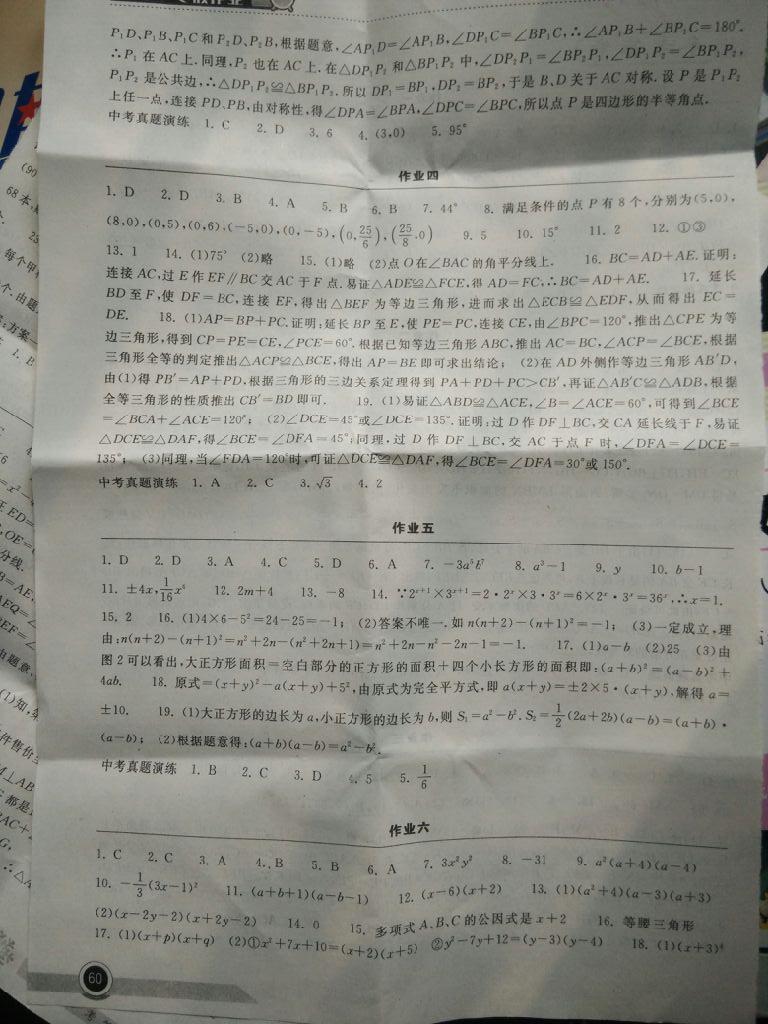 P₁D、P₁B、P₁C和P₂D、P₂B,根据题意,∠AP₁D=∠AP₁B,∠DP₁C=∠BP₁C,∴∠AP₁B+∠BP₁C=180°.
∴P₁在AC上.同理,P₂也在AC上.在△DP₁P₂和△BP₁P₂中,∠DP₂P₁=∠BP₂P₁,∠DP₁P₂=∠BP₁P₂,
P₁P₂是公共边,∴△DP₁P₂≌△BP₁P₂.所以DP₁=BP₁,DP₂=BP₂,于是B、D关于AC对称.设P是P₁P₂
上任一点,连接PD、PB,由对称性,得∠DPA=∠BPA,∠DPC=∠BPC,所以点P是四边形的半等角点.
中考真题演练 1. C 2. D 3. 6 4. (3,0) 5. 95°
作业四
1. D 2. D 3. B 4. A 5. B 6. B 7. 44° 8. 满足条件的点P有8个,分别为(5,0),
(8,0),(0,5),(0,6),(-5,0),(0,-5),(0,25/6),(25/8,0) 9. 5 10. 15° 11. 2 12. ①③
13. 1 14. (1)75° (2)略 15. (1)略 (2)点O在∠BAC的角平分线上. 16. BC=AD+AE.证明:
连接AC,过E作EF∥BC交AC于F点.易证△ADE≌△FCE.得AD=FC,∴BC=AD+AE. 17. 延长
BD至F,使DF=BC,连接EF,得出△BEF为等边三角形,进而求出△ECB≌△EDF,从而得出EC=
DE. 18. (1)AP=BP+PC.证明:延长BP至E,使PE=PC,连接CE,由∠BPC=120°,推出△CPE为等
边三角形,得到CP=PE=CE,∠PCE=60°.根据已知等边三角形ABC,推出AC=BC,∠ACP=∠BCE,根据
三角形全等的判定推出△ACP≌△BCE,得出AP=BE即可求出结论; (2)在AD外侧作等边三角形AB′D,
由(1)得PB′=AP+PD.根据三角形的三边关系定理得到PA+PD+PC>CB′,再证△AB′C≌△ADB,根据
全等三角形的性质推出CB′=BD即可. 19. (1)易证△ABD≌△ACE,∠B=∠ACE=60°,可得到∠BCE
=∠BCA+∠ACE=120°; (2)∠DCE=45°或∠DCE=135°.证明:过D作DF⊥BC,交CA延长线于F,易证
△DCE≌△DAF,得∠BCE=∠DFA=45°;同理,过D作DF⊥BC,交AC于点F时,∠DFA=∠DCE=
135°; (3)同理,当∠FDA=120°时,可证△DCE≌△DAF,得∠BCE=∠DFA=30°或150°.
中考真题演练 1. A 2. C 3. √3 4. 2
作业五
1. D 2. D 3. A 4. C 5. D 6. A 7. -3a⁵b⁷ 8. a³-1 9. y 10. b-1
11. ±4x,1/16x⁴ 12. 2m+4 13. -8 14. ∵2ˣ⁺¹×3ˣ⁺¹=2·2ˣ×3·3ˣ=6×2ˣ·3ˣ=36ˣ,∴x=1.
15. 2 16. (1)4×6-5²=24-25=-1; (2)答案不唯一.如n(n+2)-(n+1)²=-1; (3)一定成立,理
由:n(n+2)-(n+1)²=n²+2n-(n²+2n+1)=n²+2n-n²-2n-1=-1. 17. (1)a-b (2)25 (3)由
图2可以看出,大正方形面积=空白部分的正方形的面积+四个小长方形的面积即:(a+b)²=(a-b)²+
4ab. 18. 原式=(x+y)²-a(x+y)+5²,由原式为完全平方式,即a(x+y)=±2×5·(x+y),解得a=
±10. 19. (1)大正方形的边长为a,小正方形的边长为b,则S₁=a²-b².S₂=1/2(2a+2b)(a-b)=(a+b)·
(a-b); (2)根据题意得:(a+b)(a-b)=a²-b².
中考真题演练 1. B 2. C 3. D 4. 5 5. 1/6
作业六
1. C 2. C 3. A 4. B 5. B 6. A 7. 3x²y² 8. -31 9. a²(a+4)(a-4)
10. -1/3(3x-1)² 11. (a+b+1)(a-b-1) 12. (x-6)(x+2) 13. (1)(a²+4)(a-3)(a+3)
(2)(x-2y-2)(x+2y-2) 14. 0 15. 多项式A、B、C的公因式是x+2 16. 等腰三角形
17. (1)(x+p)(x+q) (2)①x²+7x+10=(x+2)(x+5) ②y²-7y+12=(y-3)(y-4) 18. (1)(x+3)⁴
60